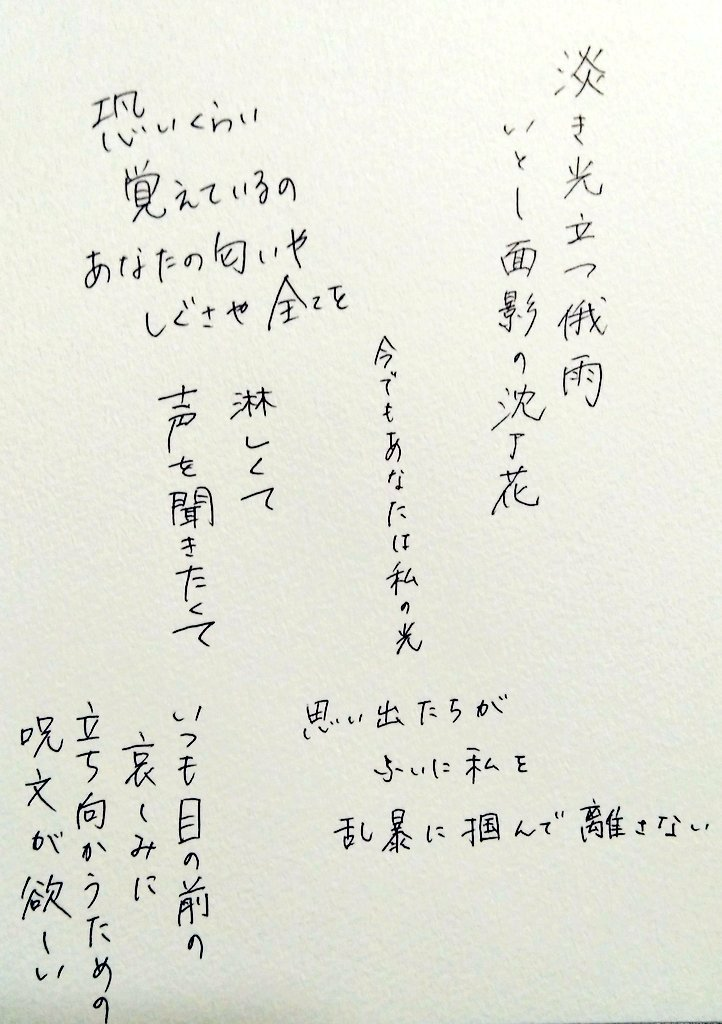 淡き光立つ俄雨
いとし面影の沈丁花
恐いくらい
覚えているの
あなたの匂いや
しぐさや全てを
今でもあなたは私の光
淋しくて
声を聞きたくて
思い出たちが
ふいに私を
乱暴に掴んで離さない
いつも目の前の
哀しみに
立ち向かうための
呪文が欲しい